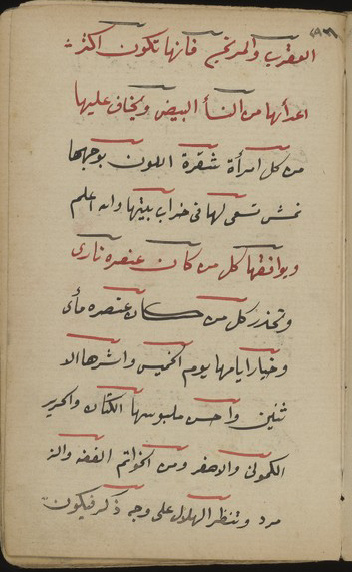 العقرب والمريخ فانها تكون اكثر
اعدائها من النسأ البيض ويخاف عليها
من كل امرأة شقرة اللون بوجهها
نمش تسعى لها فى خراب بيتها والله اعلم
ويوافقها كل من كان عنصره نارى
وتحذر كل من كان عنصره مأى
وخيار ايامها يوم الخميس واشرها الا
ثنين واحسن ملبوسها الكتان والحرير
الكمونى والاصفر ومن الخواتم الفضه والز
مرد وتنظر الهلال على وجه ذكر فيكون